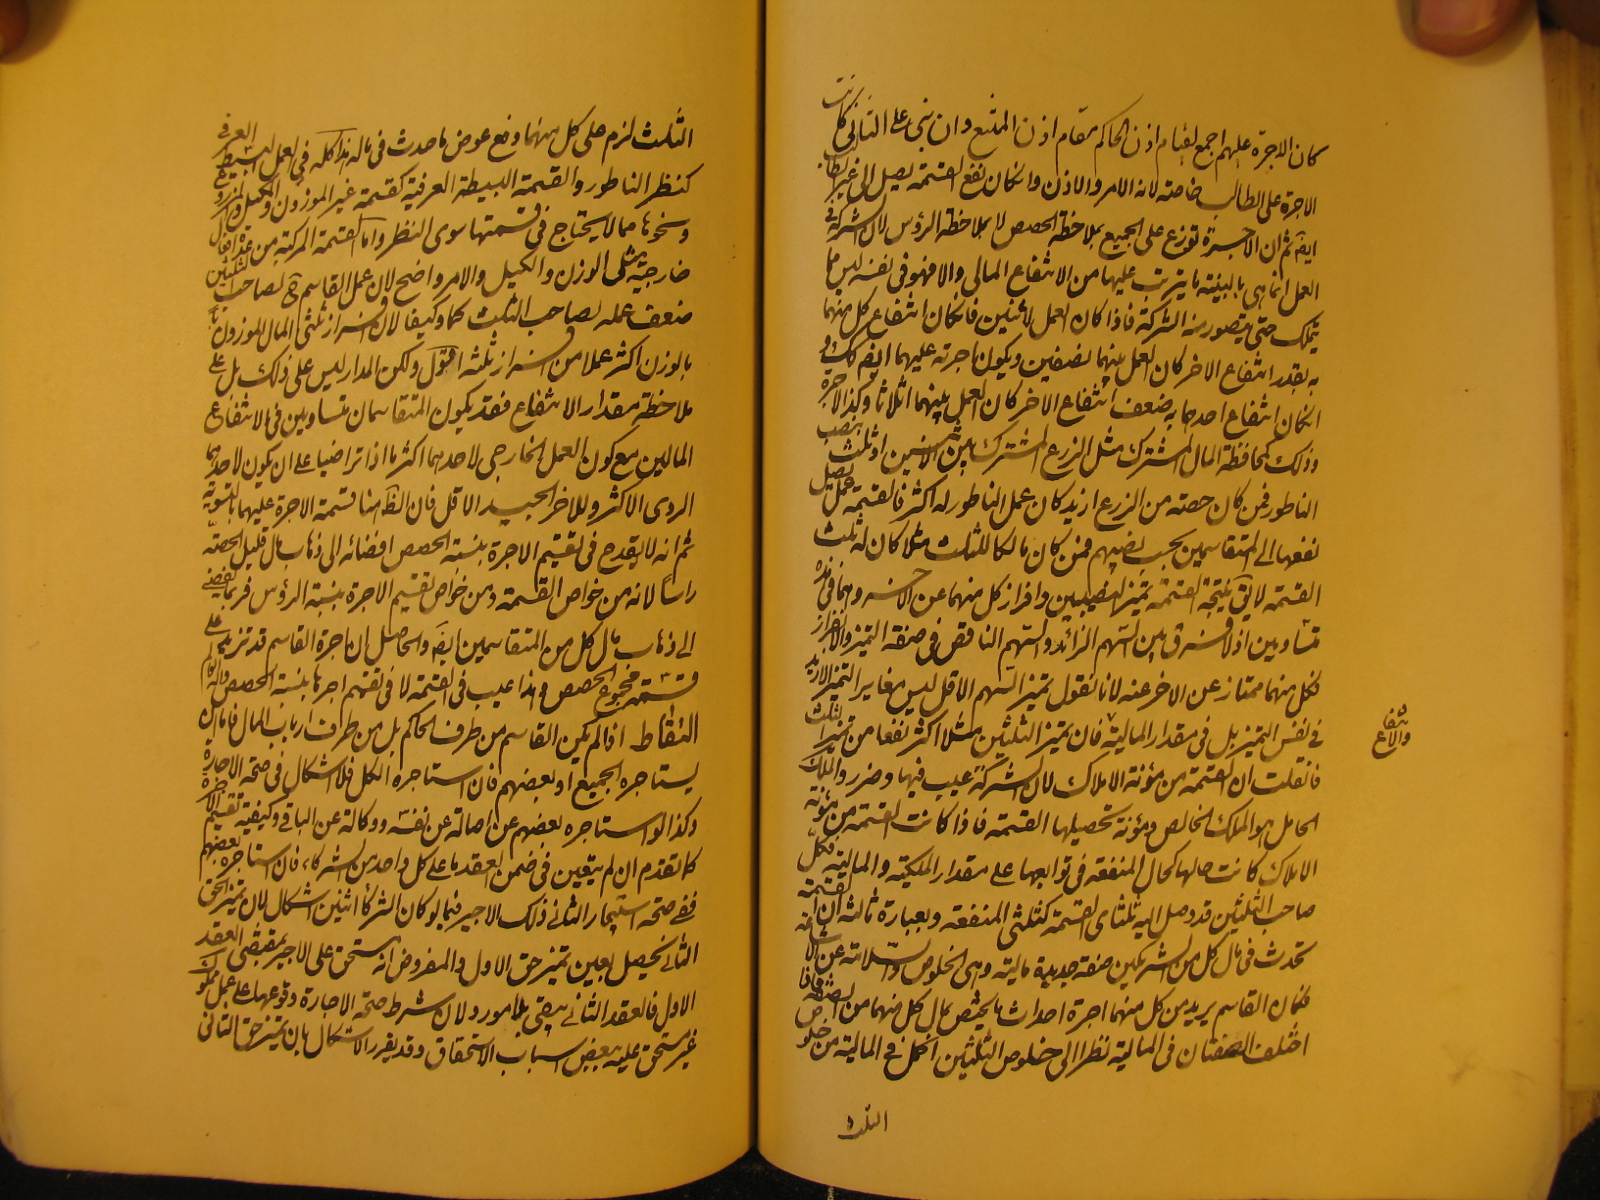 كان الاجرة عليهم اجمع لقيام اذن الحاكم مقام اذن الممتنع وان بنى على الثانى كانت
الاجرة على الطالب خاصته لانه الامر والاذن وان كان نفع القسمة يصل الى غير الطالب
ايضا ثم ان الاجرة توزع على الجميع بملاحظة الحصص لا بملاحظة الرؤس لان الشركة فى
العمل انما هى بالبينة ما يترتب عليها من الانتفاع المالى والا فهو فى نفسه ليس مما
يتملك حتى يتصور منه الشركة فاذا كان العمل لاثنين فان كان انتفاع كل منهما
به بقدر انتفاع الاخر كان العمل بينهما نصفين ويكون اجرته عليهما ايضا كك و
ان كان انتفاع احدهما به ضعف انتفاع الاخر كان العمل بينهما اثلاثا وكذا الاجرة
وذلك كمحافظة المال المشترك مثل الزرع المشترك بين الاثنين او ثلث بنصب
الناطور فمن كان حصته من الزرع ازيد كان عمل الناطور له اكثر فالقسمة عمل يصل
نفعها الى المتقاسمين بحسب نصيبهم فمن كان مالكا للثلث مثلا كان له ثلث
القسمة لا يق نتيجة القسمة تميز النصيبين وافراز كل منهما عن الاخر وهما فى هذه
متساويين اذ لا فرق بين السهم الزائد والسهم الناقص فى صفة التميز والافراز
فكل منهما ممتاز عن الاخر عنه لانا نقول تميز السهم الاقل ليس مغاير التميز الازيد
فى نفس التميز بل فى مقدار المالية فان تميز الثلثين مثلا اكثر نفعا من تميز الثلث
والانتفاع
فان قلت ان القسمة من مؤنة الاملاك لان الشركة عيب فيها وضرر والملك
الكامل هو الملك الخالص ومؤنة تحصيلها القسمة فاذا كانت القسمة من مؤنة
الاملاك كانت حالها كحال المنفعة فى توابعها على مقدار الملكية والمالية فكل
صاحب الثلثين قد وصل اليه ثلثاى القسمة كثلثى المنفعة وبعبارة ثالثة ان القسمة
تحدث فى مال كل من الشريكين صفة جديدة مالية وهى الخلوص والسلامة عن الاشاعة
فكان القاسم يريد من كل منهما اجرة احداث ما يختص بمال كل منهما من الصفة فاذا
اختلف الصفتان فى المالية نظرا الى خلوص الثلثين اكمل فى المالية من خلوص
الثلث
الثلث لزم على كل منهما دفع عوض ما حدث فى ماله هذا كله فى العمل البسيط العرفى
كنظر الناطور والقسمة البسيطة العرفية كقسمة غير الموزون والمكيل والمزروع
ونحوها مما لا يحتاج فى قسمتها سوى النظر واما القسمة المركبة من عدة افعال
خارجية مثل الوزن والكيل والامر واضح لان عمل القاسم ح لصاحب الثلثين
ضعف عمله لصاحب الثلث كما وكيفا لان افراز ثلثى المال الموزون
بالوزن اكثر عملا من افراز ثلثه اقول ولكن المدار ليس على ذلك بل على
ملاحظة مقدار الانتفاع فقد يكون المتقاسمان متساويين فى الانتفاع
المالين مع كون العمل الخارجى لاحدهما اكثر ما اذا تراضيا على ان يكون لاحدهما
الردى الاكثر وللاخر الجيد الاقل فان الظ هنا قسمة الاجرة عليهما بالسوية
ثم انه لا يقدح فى تقسيم الاجرة بنسبة الحصص افضائه الى ذهاب مال قليل الحصة
راسا لانه من خواص القسمة ومن خواص تقسيم الاجرة بنسبة الرؤس فربما يفضى
الى ذهاب مال كل من المتقاسمين ايضا والحاصل ان اجرة القاسم قد تزيد على
قسمته مجموع الحصص وهذا عيب فى القسمة لا فى تقسيم اجرها بنسبة الحصص والله العالم
التقاط اذا لم يكن القاسم من طرف الحاكم بل من طرف ارباب المال فاما ان
يستاجره الجميع او بعضهم فان استاجره الكل فلا اشكال فى صحة الاجارة
وكذا لو استاجره بعضهم عن اصالة عن نفسه ووكالة عن الباقى وكيفية تقسيم الاجرة
كما تقدم ان لم يتعين فى ضمن العقد ما على كل واحد من الشركاء، فان استاجره بعضهم
ففى صحة استيجار الثانى ذلك الاجير فيما لو كان الشركاء اثنين اشكال لان تميز الحق
الثانى يحصل بعين تميز حق الاول والمفروض انه مستحق على الاجير بمقتضى العقد
الاول فالعقد الثانى يبقى بلا مورد ولان شرط صحة الاجارة وقوعها على عمل مملوك
غير مستحق عليه ببعض اسباب الاستحقاق وقد يقرر الاشكال بان تميز حق الثانى